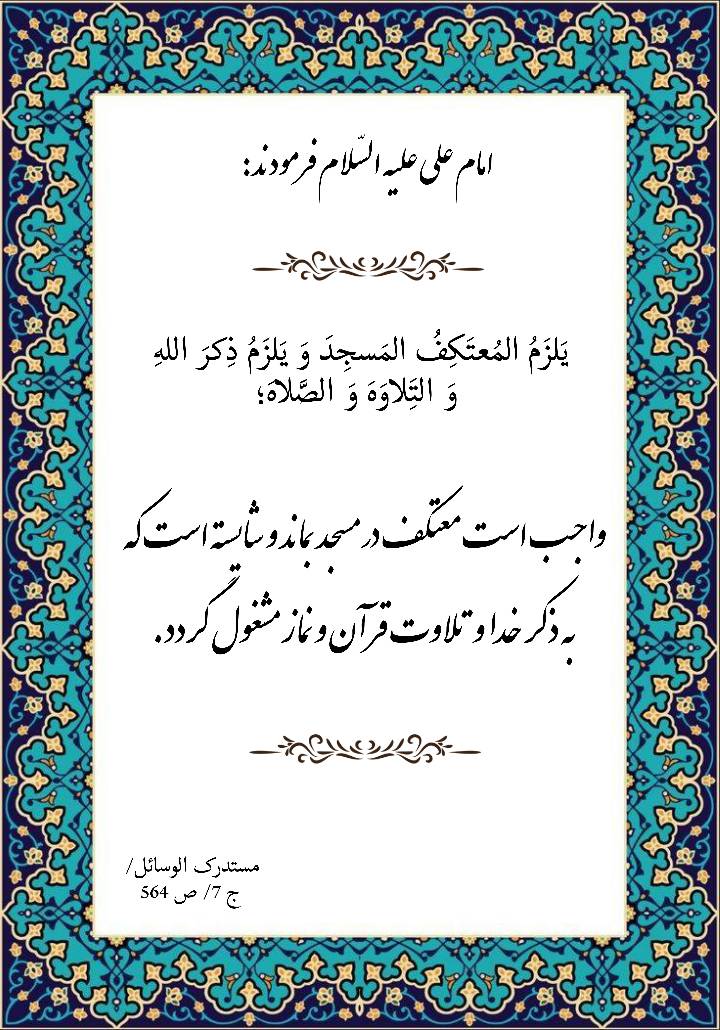 امام علی علیه السّلام فرمودند:
یَلزَمُ المُعتَکِفُ المَسجِدَ وَ یَلزَمُ ذِکرَ اللهِ
وَ التِّلاوَهَ وَ الصَّلاهَ؛
واجب است معتکف در مسجد بماند و شایسته است که
به ذکر خدا و تلاوت قرآن و نماز مشغول گردد.
مستدرک الوسائل/
ج 7/ ص 564